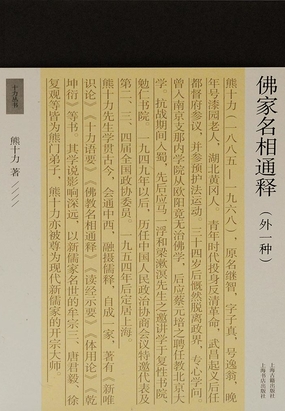 佛家名相通释
（外一种）
上海古籍出版社
上海书店出版社
熊十力（一八八五—一九六八），原名继智，字子真，号逸翁，晚
年号漆园老人，湖北黄冈人。青年时代投身反清革命，武昌起义后任
都督府参议，并参预护法运动。三十四岁后慨然脱离政界，专心学问，
曾入南京支那内学院从欧阳竟无治佛学，后应蔡元培之聘任教北京大
学。抗战期间入蜀，先后应马一浮和梁漱溟先生之邀讲学于复性书院、
勉仁书院。一九四九年以后，历任中国人民政治协商会议特邀代表及
第二、三、四届全国政协委员。一九五四年后定居上海。
熊十力先生学贯古今，会通中西，融摄儒释，自成一家，著有《新唯
识论》《十力语要》《佛教名相通释》《读经示要》《体用论》《乾
坤衍》等书。其学说影响深远，以新儒家名世的牟宗三、唐君毅、徐
复观等皆为熊门弟子，熊十力亦被尊为现代新儒家的开宗大师。
十力丛书
熊十力 著